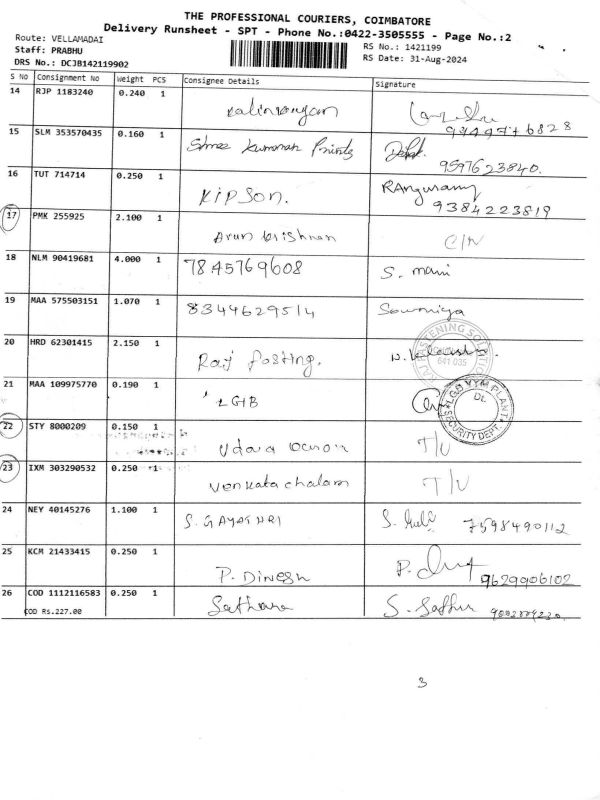 THE PROFESSIONAL COURIERS, COIMBATORE
Delivery Runsheet - SPT - Phone No.:0422-3505555 - Page No.:2
Route: VELLAMADAI
RS No.: 1421199
Staff: PRABHU
RS Date: 31-Aug-2024
DRS No.: DCJB142119902
S No Consignment No Weight PCS Consignee Details Signature
14 RJP 1183240 0.240 1
15 SLM 353570435 0.160 1 Shree Kumaran Prints 9597623840.
16 TUT 714714 0.250 1 KIPSON. RAnguramy 9384223819
17 PMK 255925 2.100 1 Arun krishnan C/N
18 NLM 90419681 4.000 1 7845769608 S. mani
19 MAA 575503151 1.070 1 8344629514 Sowmiya
20 HRD 62301415 2.150 1 Raj fosting.
641 035
21 MAA 109975770 0.190 1 LGB
L.G.B VYM PLANT
Dt.
SECURITY DEPT.
22 STY 8000209 0.150 1 T/U
23 IXM 303290532 0.250 1 venkata chalam T/U
24 NEY 40145276 1.100 1 S. GAYATHRI 7598490112
25 KCM 21433415 0.250 1 P. Dinesh 9629906102
26 COD 1112116583 0.250 1
COD Rs.227.00
3